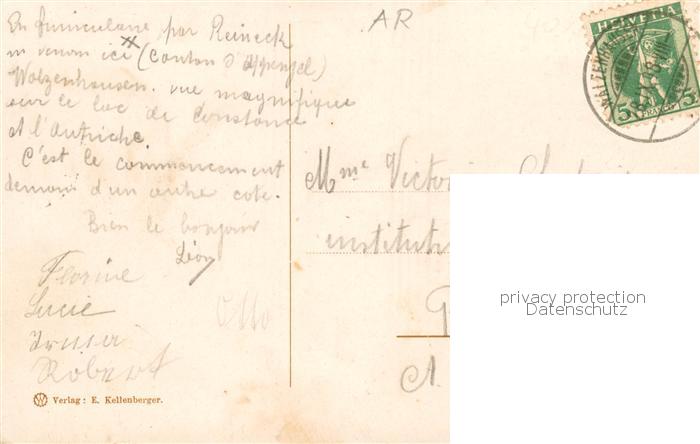 AR
En funiculaire par Reineck
ici (Canton d'Appenzel)
Walzenhausen. vue magnifique
sur le lac de Constance
et l'Autriche.
C'est le commencement
demain d'un autre coté.
Bien le bonjour
Léon
Florine
Lucie
Robert
Otto
HELVETIA
5
FRANCO
Mme Victori
institutri
privacy protection
Datenschutz
Verlag: E. Kellenberger.